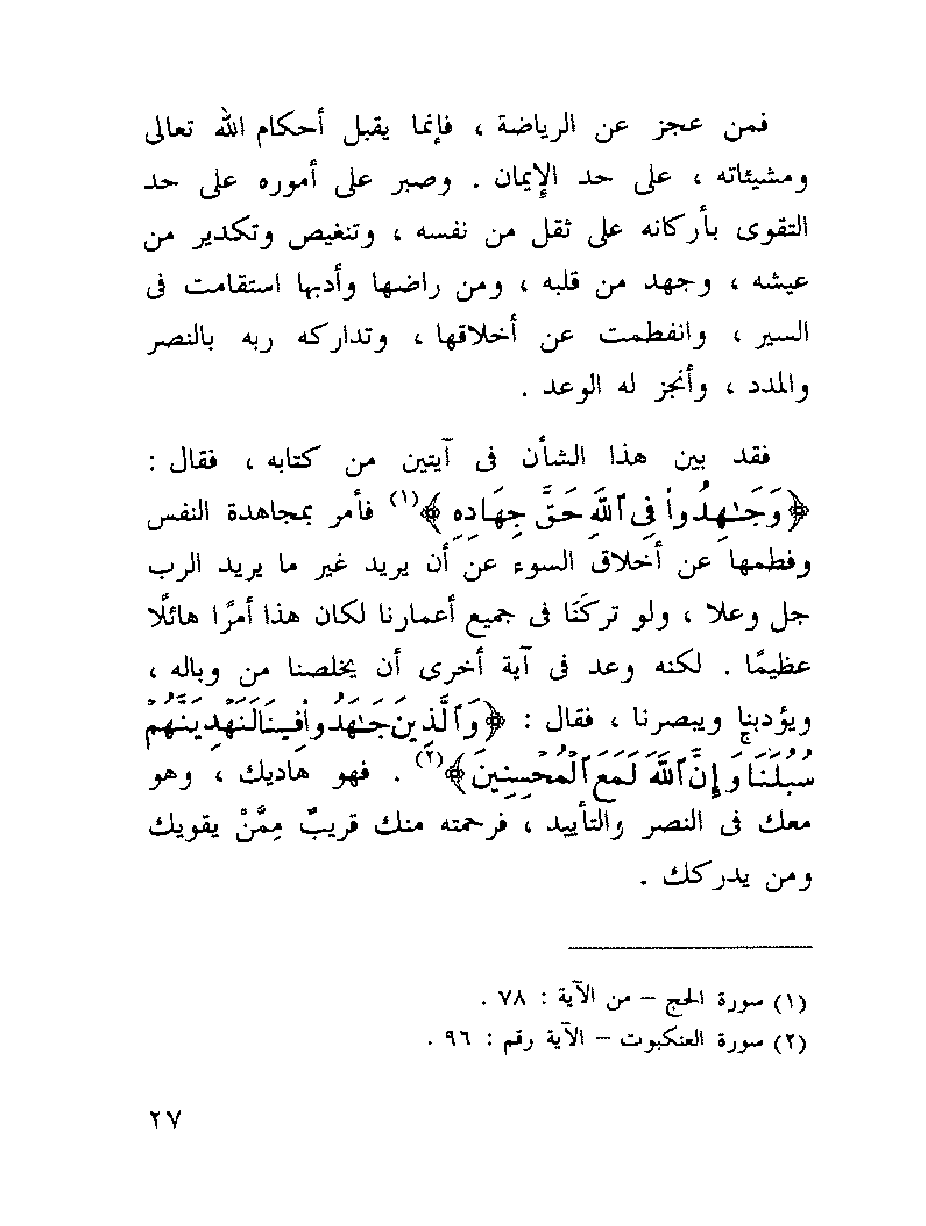 فمن عجز عن الرياضة ، فإنما يقبل أحكام الله تعالى
ومشيئاته ، على حد الإيمان . وصبر على أموره على حد
التقوى بأركانه على ثقل من نفسه ، وتنغيص وتكدير من
عيشه ، وجهد من قلبه ، ومن راضها وأدبها استقامت فى
السير ، وانفطمت عن أخلاقها ، وتداركه ربه بالنصر
والمدد ، وأنجز له الوعد .
فقد بين هذا الشأن فى آيتين من كتابه ، فقال :
﴿ وَجَـٰهِدُوا۟ فِى ٱللَّهِ حَقَّ جِهَادِهِ ﴾(١) فأمر بمجاهدة النفس
وفطمها عن أخلاق السوء عن أن يريد غير ما يريد الرب
جل وعلا ، ولو تركَنَا فى جميع أعمارنا لكان هذا أمرًا هائلًا
عظيمًا . لكنه وعد فى آية أخرى أن يخلصنا من وباله ،
ويؤدبنا ويبصرنا ، فقال : ﴿ وَٱلَّذِينَ جَـٰهَدُوا۟ فِينَا لَنَهْدِيَنَّهُمْ
سُبُلَنَا وَإِنَّ ٱللَّهَ لَمَعَ ٱلْمُحْسِنِينَ ﴾(٢) . فهو هاديك ، وهو
معك فى النصر والتأييد ، فرحمته منك قريبٌ مِمَّنْ يقويك
ومن يدركك .
(١) سورة الحج – من الآية : ٧٨ .
(٢) سورة العنكبوت – الآية رقم : ٩٦ .
٢٧